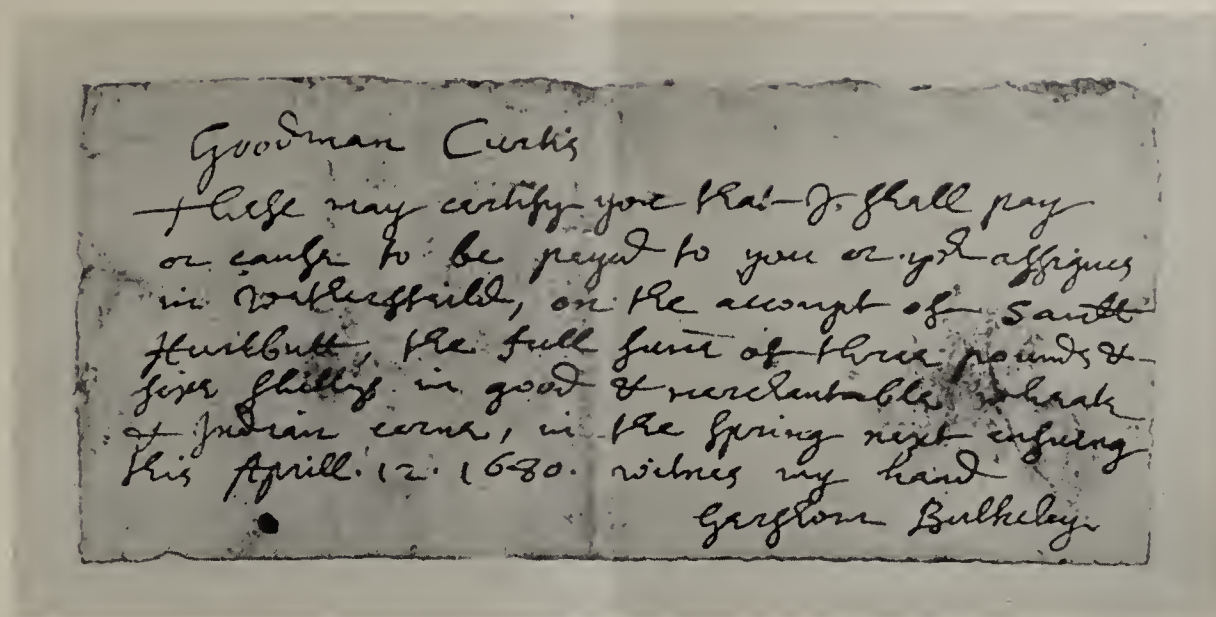 Goodman Curtis
these may certify you that I shall pay
or cause to be payed to you or yor assignes
in Wethersfeild, on the accompt of Samll
Hurlbutt, the full sume of three pounds &
sixe shillings in good & merchantable wheate
& Indian corne, in the spring next ensuing
this Aprill. 12. 1680. witnes my hand
Gershom Bulkeley.